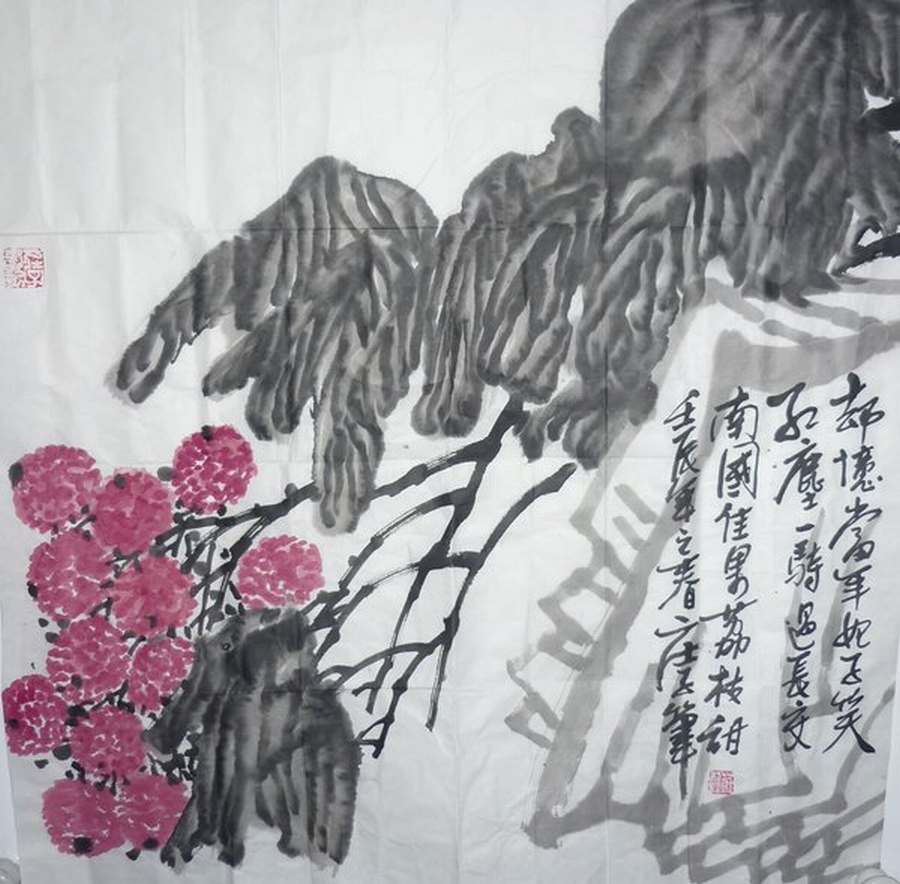 却憶當年妃子笑
紅塵一騎過長安
南國佳果荔枝甜
壬辰年之春筆